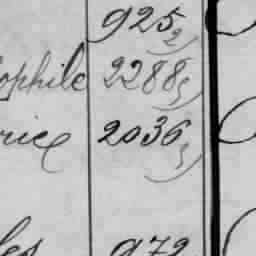 925 2
ophile 2288 5
rice 2036 5
les 972